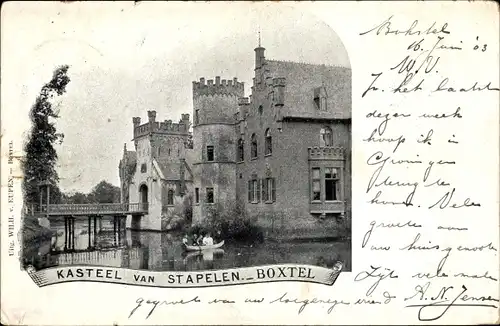 Uitg. WILH. v. EUPEN, - BOXTEL.
KASTEEL VAN STAPELEN. - BOXTEL
Bokstel
16 Juni '03
W.V.
In het laatst
dezer week
hoop ik in
Groningen
terug te
komen. Vele
groeten aan
uw huisgenooten
Zijt vele malen
gegroet van uw toegenegen vriend A. N. Jansen